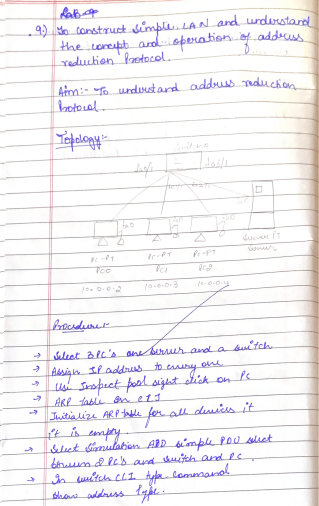 Lab
9.) To construct simple LAN and understand
the concept and operation of address
reduction Protocol.
Aim:- To understand address reduction
Protocol.
Topology:-
PC-PT PC-PT PC-PT
PC0 PC1
10.0.0.2 10.0.0.3 10.0.0.4
Procedure:-
→ Select 3 PC's one server and a switch
→ Assign IP address to every one
→ Use Inspect tool right click on PC
→ ARP table on CLI
→ Initialize ARP table for all devices it
it is empty.
→ Select Simulation ADD simple PDU select
between 2 PC's and switch and PC.
→ In switch CLI type command
show address type.